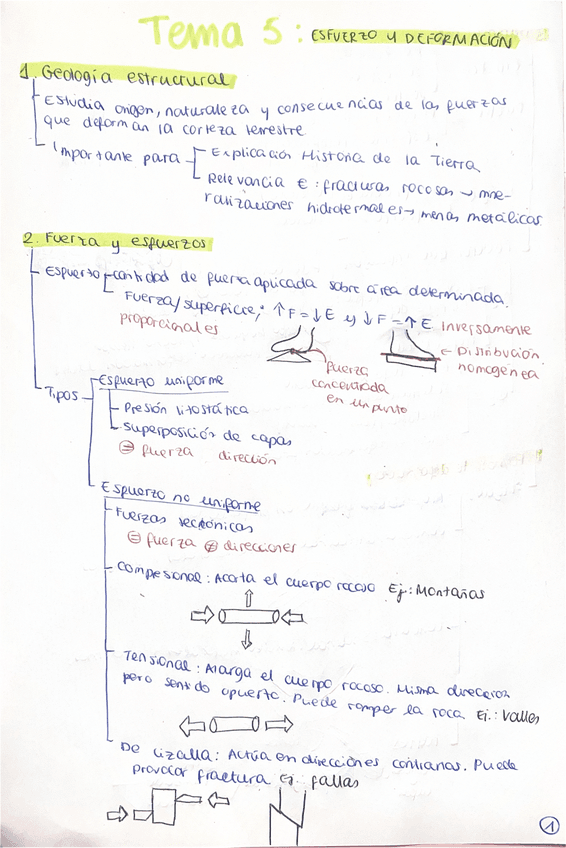 Tema 5: ESFUERZO Y DEFORMACIÓN
1. Geología estructural
Estudia origen, naturaleza y consecuencias de las fuerzas
que deforman la corteza terrestre
Importante para
Explicación Historia de la Tierra
Relevancia €: fracturas rocosas → mine-
ralizaciones hidrotermales → menas metálicas
2. Fuerza y esfuerzos
Esfuerzo
cantidad de fuerza aplicada sobre área determinada.
Fuerza/superficie; ↑F = ↓E y ↓F = ↑E Inversamente
proporcionales
fuerza
concentrada
en un punto
← Distribución
homogénea
Tipos
Esfuerzo uniforme
Presión litostática
Superposición de capas
= fuerza dirección
Esfuerzo no uniforme
Fuerzas tectónicas
= fuerza ≠ direcciones
Compesional: Acorta el cuerpo rocoso Ej: Montañas
Tensional: Alarga el cuerpo rocoso. Misma direccion
pero sentido opuesto. Puede romper la roca Ej.: Valles
De cizalla: Actúa en direcciones contrarias. Puede
provocar fractura Ej. fallas
1